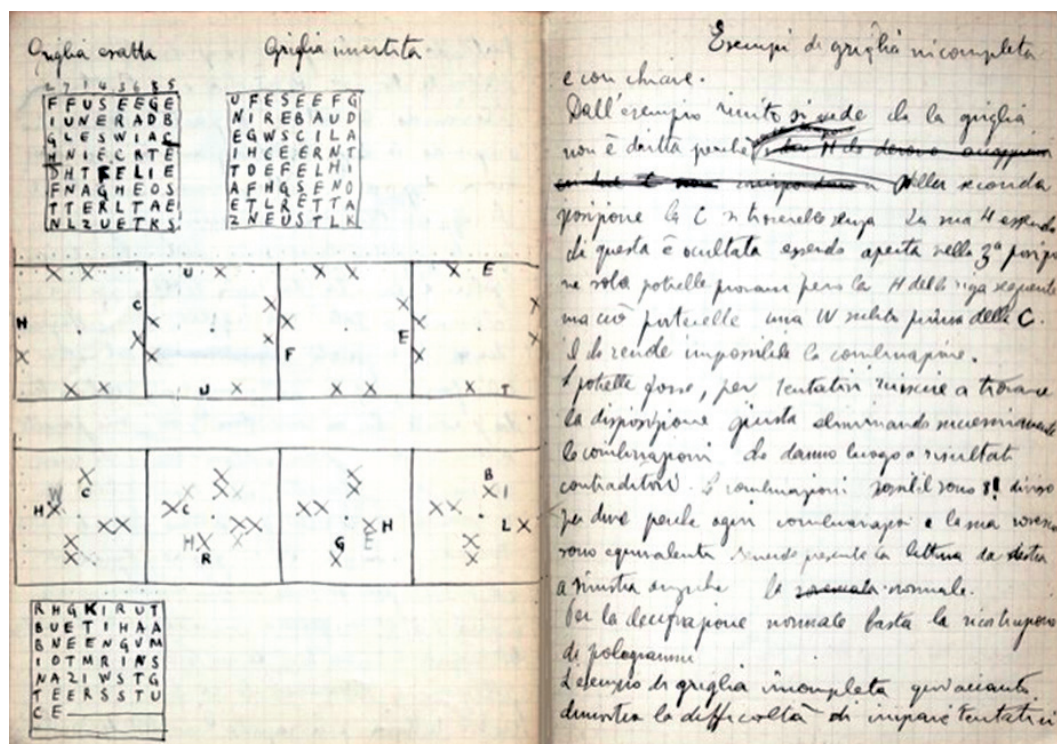 Griglia esatta
Griglia invertita
2 7 1 4 3 6 8 5
F F U S E E G E
I U N E R A D B
G L E S W I A C
H N I E C R T E
D H T F E L I E
F N A G H E O S
T T E R L T A E
N L Z U E T K S
U F E S E E F G
N I R E B A U D
E G W S C I L A
I H C E E R N T
T D E F E L H I
A F H G S E N O
E T L R E T T A
Z N E U S T L K
U E
H F E
U T
W C C B I
H H G E H L
R
R H G K I R U T
B U E T I H A A
B N E E N G U M
I O T M R I N S
N A Z I W S T G
T E E R S S T U
C E
Esempi di griglia incompleta
e con chiave.
Dall'esempio si vede che la griglia
non è perché
nella seconda
posizione la C senza la sua H essendo
di questa è occultata essendo aperta nella 3ª
ne potrebbe però la H della riga seguente
ma ciò una W subito prima della C.
che rende impossibile la combinazione.
potrebbe forse, per tentativi riuscire a trovare
la disposizione giusta eliminando successivamente
le combinazioni che danno luogo a risultati
contraditori. combinazioni sono 8! diviso
per due perché ogni e la sua
sono equivalenti la lettura da destra
a sinistra anziché la normale.
Per la decifrazione normale basta la
di
L'esempio di griglia incompleta
dimostra la difficoltà di tentativi